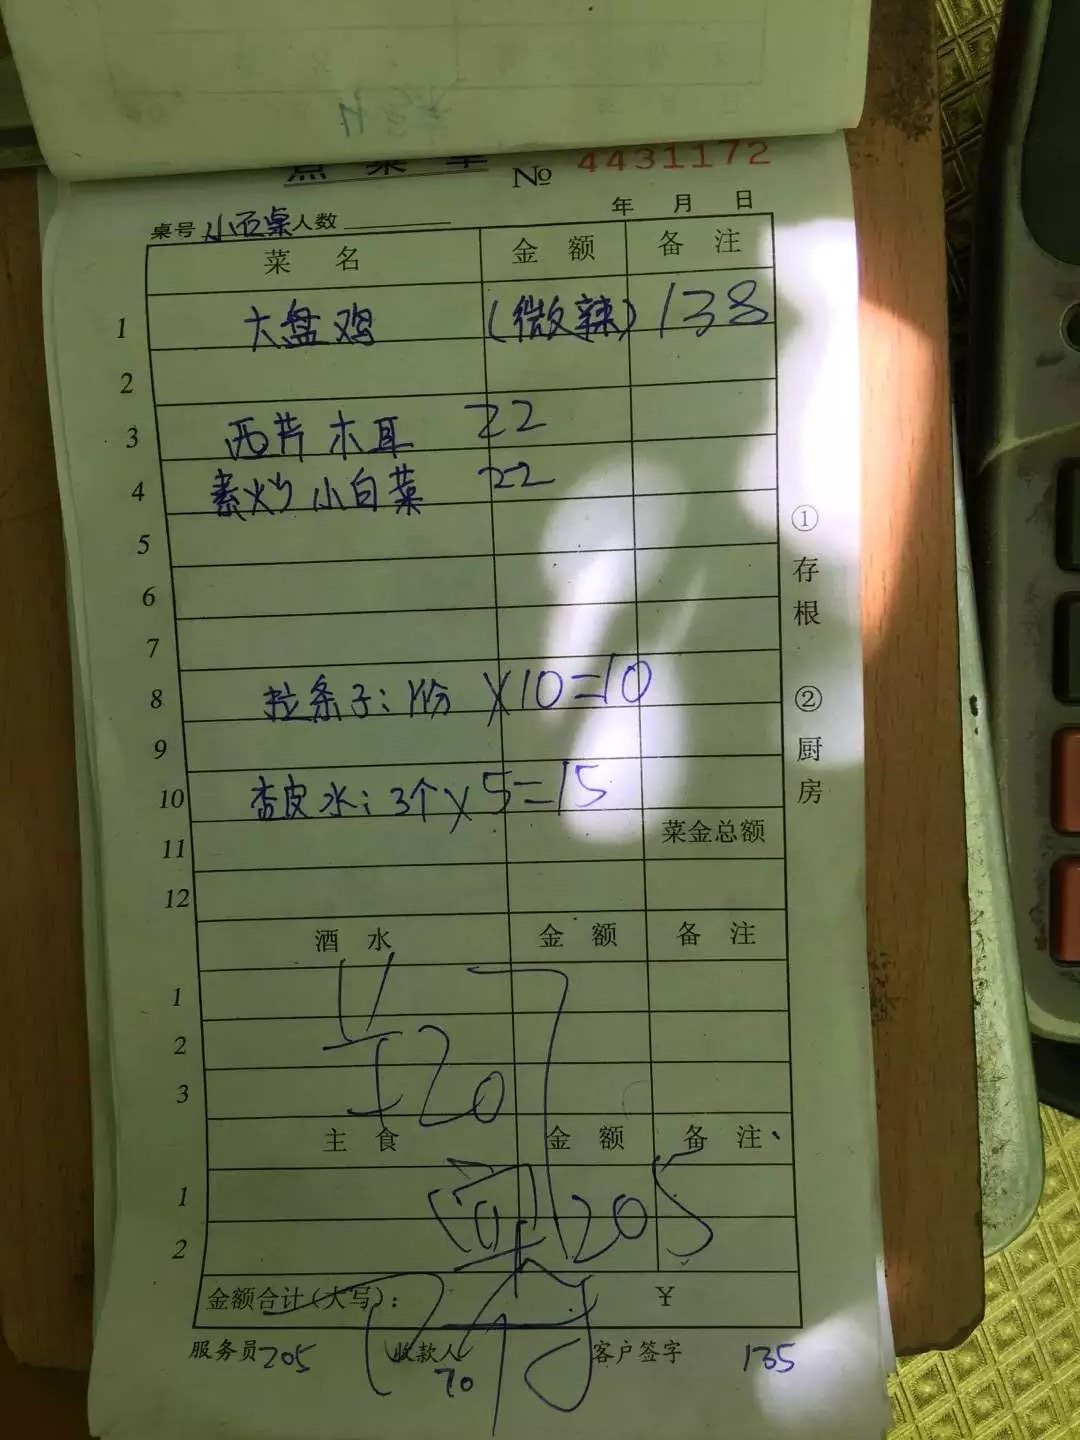 点菜单 No 4431172
桌号 小石桌 人数 年 月 日
菜名 金额 备注
1 大盘鸡 (微辣) 138
2
3 西芹木耳 22
4 素炒小白菜 22
5
6
7
8 拉条子:1份 X10=10
9
10 杏皮水:3个X5=15
11 菜金总额
12
酒水 金额 备注
1
2 120
3
主食 金额 备注、
1 205
2
金额合计(大写): ¥
服务员 205 收款人 70 客户签字 135
①存根 ②厨房